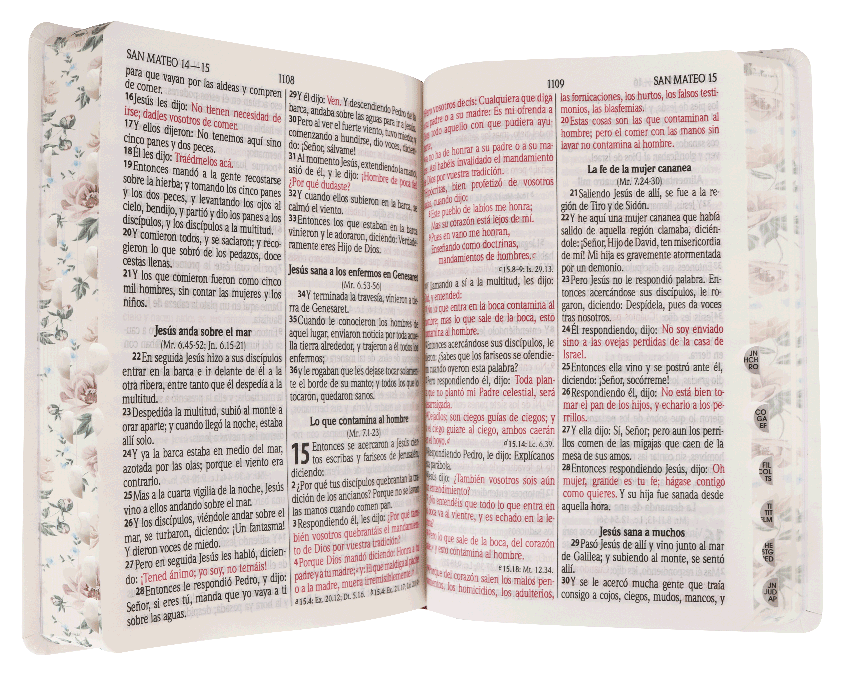 SAN MATEO 14—15
1108
para que vayan por las aldeas y compren
de comer.
16Jesús les dijo: No tienen necesidad de
irse; dadles vosotros de comer.
17Y ellos dijeron: No tenemos aquí sino
cinco panes y dos peces.
18Él les dijo: Traédmelos acá.
19Entonces mandó a la gente recostarse
sobre la hierba; y tomando los cinco panes
y los dos peces, y levantando los ojos al
cielo, bendijo, y partió y dio los panes a los
discípulos, y los discípulos a la multitud.
20Y comieron todos, y se saciaron; y reco-
gieron lo que sobró de los pedazos, doce
cestas llenas.
21Y los que comieron fueron como cinco
mil hombres, sin contar las mujeres y los
niños.
Jesús anda sobre el mar
(Mr. 6.45-52; Jn. 6.15-21)
22En seguida Jesús hizo a sus discípulos
entrar en la barca e ir delante de él a la
otra ribera, entre tanto que él despedía a la
multitud.
23Despedida la multitud, subió al monte a
orar aparte; y cuando llegó la noche, estaba
allí solo.
24Y ya la barca estaba en medio del mar,
azotada por las olas; porque el viento era
contrario.
25Mas a la cuarta vigilia de la noche, Jesús
vino a ellos andando sobre el mar.
26Y los discípulos, viéndole andar sobre el
mar, se turbaron, diciendo: ¡Un fantasma!
Y dieron voces de miedo.
27Pero en seguida Jesús les habló, dicien-
do: ¡Tened ánimo; yo soy, no temáis!
28Entonces le respondió Pedro, y dijo:
Señor, si eres tú, manda que yo vaya a ti
sobre las aguas.
29Y él dijo: Ven. Y descendiendo Pedro de la
barca, andaba sobre las aguas para ir a Jesús.
30Pero al ver el fuerte viento, tuvo miedo; y
comenzando a hundirse, dio voces, dicien-
do: ¡Señor, sálvame!
31Al momento Jesús, extendiendo la mano,
asió de él, y le dijo: ¡Hombre de poca fe!
¿Por qué dudaste?
32Y cuando ellos subieron en la barca, se
calmó el viento.
33Entonces los que estaban en la barca
vinieron y le adoraron, diciendo: Verdade-
ramente eres Hijo de Dios.
Jesús sana a los enfermos en Genesaret
(Mr. 6.53-56)
34Y terminada la travesía, vinieron a tie-
rra de Genesaret.
35Cuando le conocieron los hombres de
aquel lugar, enviaron noticia por toda aque-
lla tierra alrededor, y trajeron a él todos los
enfermos;
36y le rogaban que les dejase tocar solamen-
te el borde de su manto; y todos los que lo
tocaron, quedaron sanos.
Lo que contamina al hombre
(Mr. 7.1-23)
15 Entonces se acercaron a Jesús cier-
tos escribas y fariseos de Jerusalén,
diciendo:
2¿Por qué tus discípulos quebrantan la tra-
dición de los ancianos? Porque no se lavan
las manos cuando comen pan.
3Respondiendo él, les dijo: ¿Por qué tam-
bién vosotros quebrantáis el mandamien-
to de Dios por vuestra tradición?
4Porque Dios mandó diciendo: Honra a tu
padre y a tu madre; y: El que maldiga al padre
o a la madre, muera irremisiblemente.
a 15.4: Ex. 20.12; Dt. 5.16. b 15.4: Ex. 21.17; Lv. 20.9
1109
SAN MATEO 15
vosotros decís: Cualquiera que diga
su padre o a su madre: Es mi ofrenda a
todo aquello con que pudiera ayu-
no ha de honrar a su padre o a su ma-
Así habéis invalidado el mandamiento
Dios por vuestra tradición.
bien profetizó de vosotros
cuando dijo:
Este pueblo de labios me honra;
Mas su corazón está lejos de mí.
Pues en vano me honran,
Enseñando como doctrinas,
mandamientos de hombres.
c 15.8-9: Is. 29.13.
llamando a sí a la multitud, les dijo:
y entended:
lo que entra en la boca contamina al
mas lo que sale de la boca, esto
contamina al hombre.
Entonces acercándose sus discípulos, le
¿Sabes que los fariseos se ofendie-
cuando oyeron esta palabra?
Pero respondiendo él, dijo: Toda plan-
que no plantó mi Padre celestial, será
desarraigada.
son ciegos guías de ciegos; y
ciego guiare al ciego, ambos caerán
hoyo.
d 15.14: Lc. 6.39.
Respondiendo Pedro, le dijo: Explícanos
parábola.
Jesús dijo: ¿También vosotros sois aún
entendimiento?
entendéis que todo lo que entra en
va al vientre, y es echado en la le-
lo que sale de la boca, del corazón
esto contamina al hombre.
e 15.18: Mt. 12.34.
Porque del corazón salen los malos pen-
los homicidios, los adulterios,
las fornicaciones, los hurtos, los falsos testi-
monios, las blasfemias.
20Estas cosas son las que contaminan al
hombre; pero el comer con las manos sin
lavar no contamina al hombre.
La fe de la mujer cananea
(Mr. 7.24-30)
21Saliendo Jesús de allí, se fue a la re-
gión de Tiro y de Sidón.
22Y he aquí una mujer cananea que había
salido de aquella región clamaba, dicién-
dole: ¡Señor, Hijo de David, ten misericordia
de mí! Mi hija es gravemente atormentada
por un demonio.
23Pero Jesús no le respondió palabra. En-
tonces acercándose sus discípulos, le ro-
garon, diciendo: Despídela, pues da voces
tras nosotros.
24Él respondiendo, dijo: No soy enviado
sino a las ovejas perdidas de la casa de
Israel.
25Entonces ella vino y se postró ante él,
diciendo: ¡Señor, socórreme!
26Respondiendo él, dijo: No está bien to-
mar el pan de los hijos, y echarlo a los pe-
rrillos.
27Y ella dijo: Sí, Señor; pero aun los perri-
llos comen de las migajas que caen de la
mesa de sus amos.
28Entonces respondiendo Jesús, dijo: Oh
mujer, grande es tu fe; hágase contigo
como quieres. Y su hija fue sanada desde
aquella hora.
Jesús sana a muchos
29Pasó Jesús de allí y vino junto al mar
de Galilea; y subiendo al monte, se sentó
allí.
30Y se le acercó mucha gente que traía
consigo a cojos, ciegos, mudos, mancos, y
JN
HCH
RO
CO
GA
EF
FIL
COL
TS
TI
TIT
FLM
HE
STG
PED
JN
JUD
AP